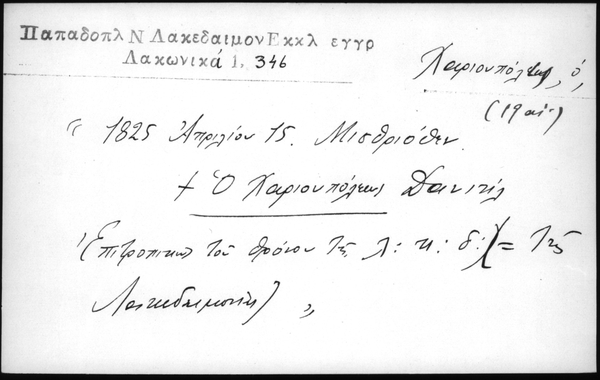 Παπαδοπλ Ν Λακεδαιμον Εκκλ εγγρ
Λακωνικά 1, 346
Χαριουπόλεως, ὁ,
(19 αἰ.)
“ 1825 Ἀπριλίου 15. Μισθριόθεν.
+ Ὁ Χαριουπόλεως Δανιήλ
(Ἐπιτροπικῶς τοῦ θρόνου τῆς λ: κ: δ:) (= τῆς
Λακεδαιμονίας) „